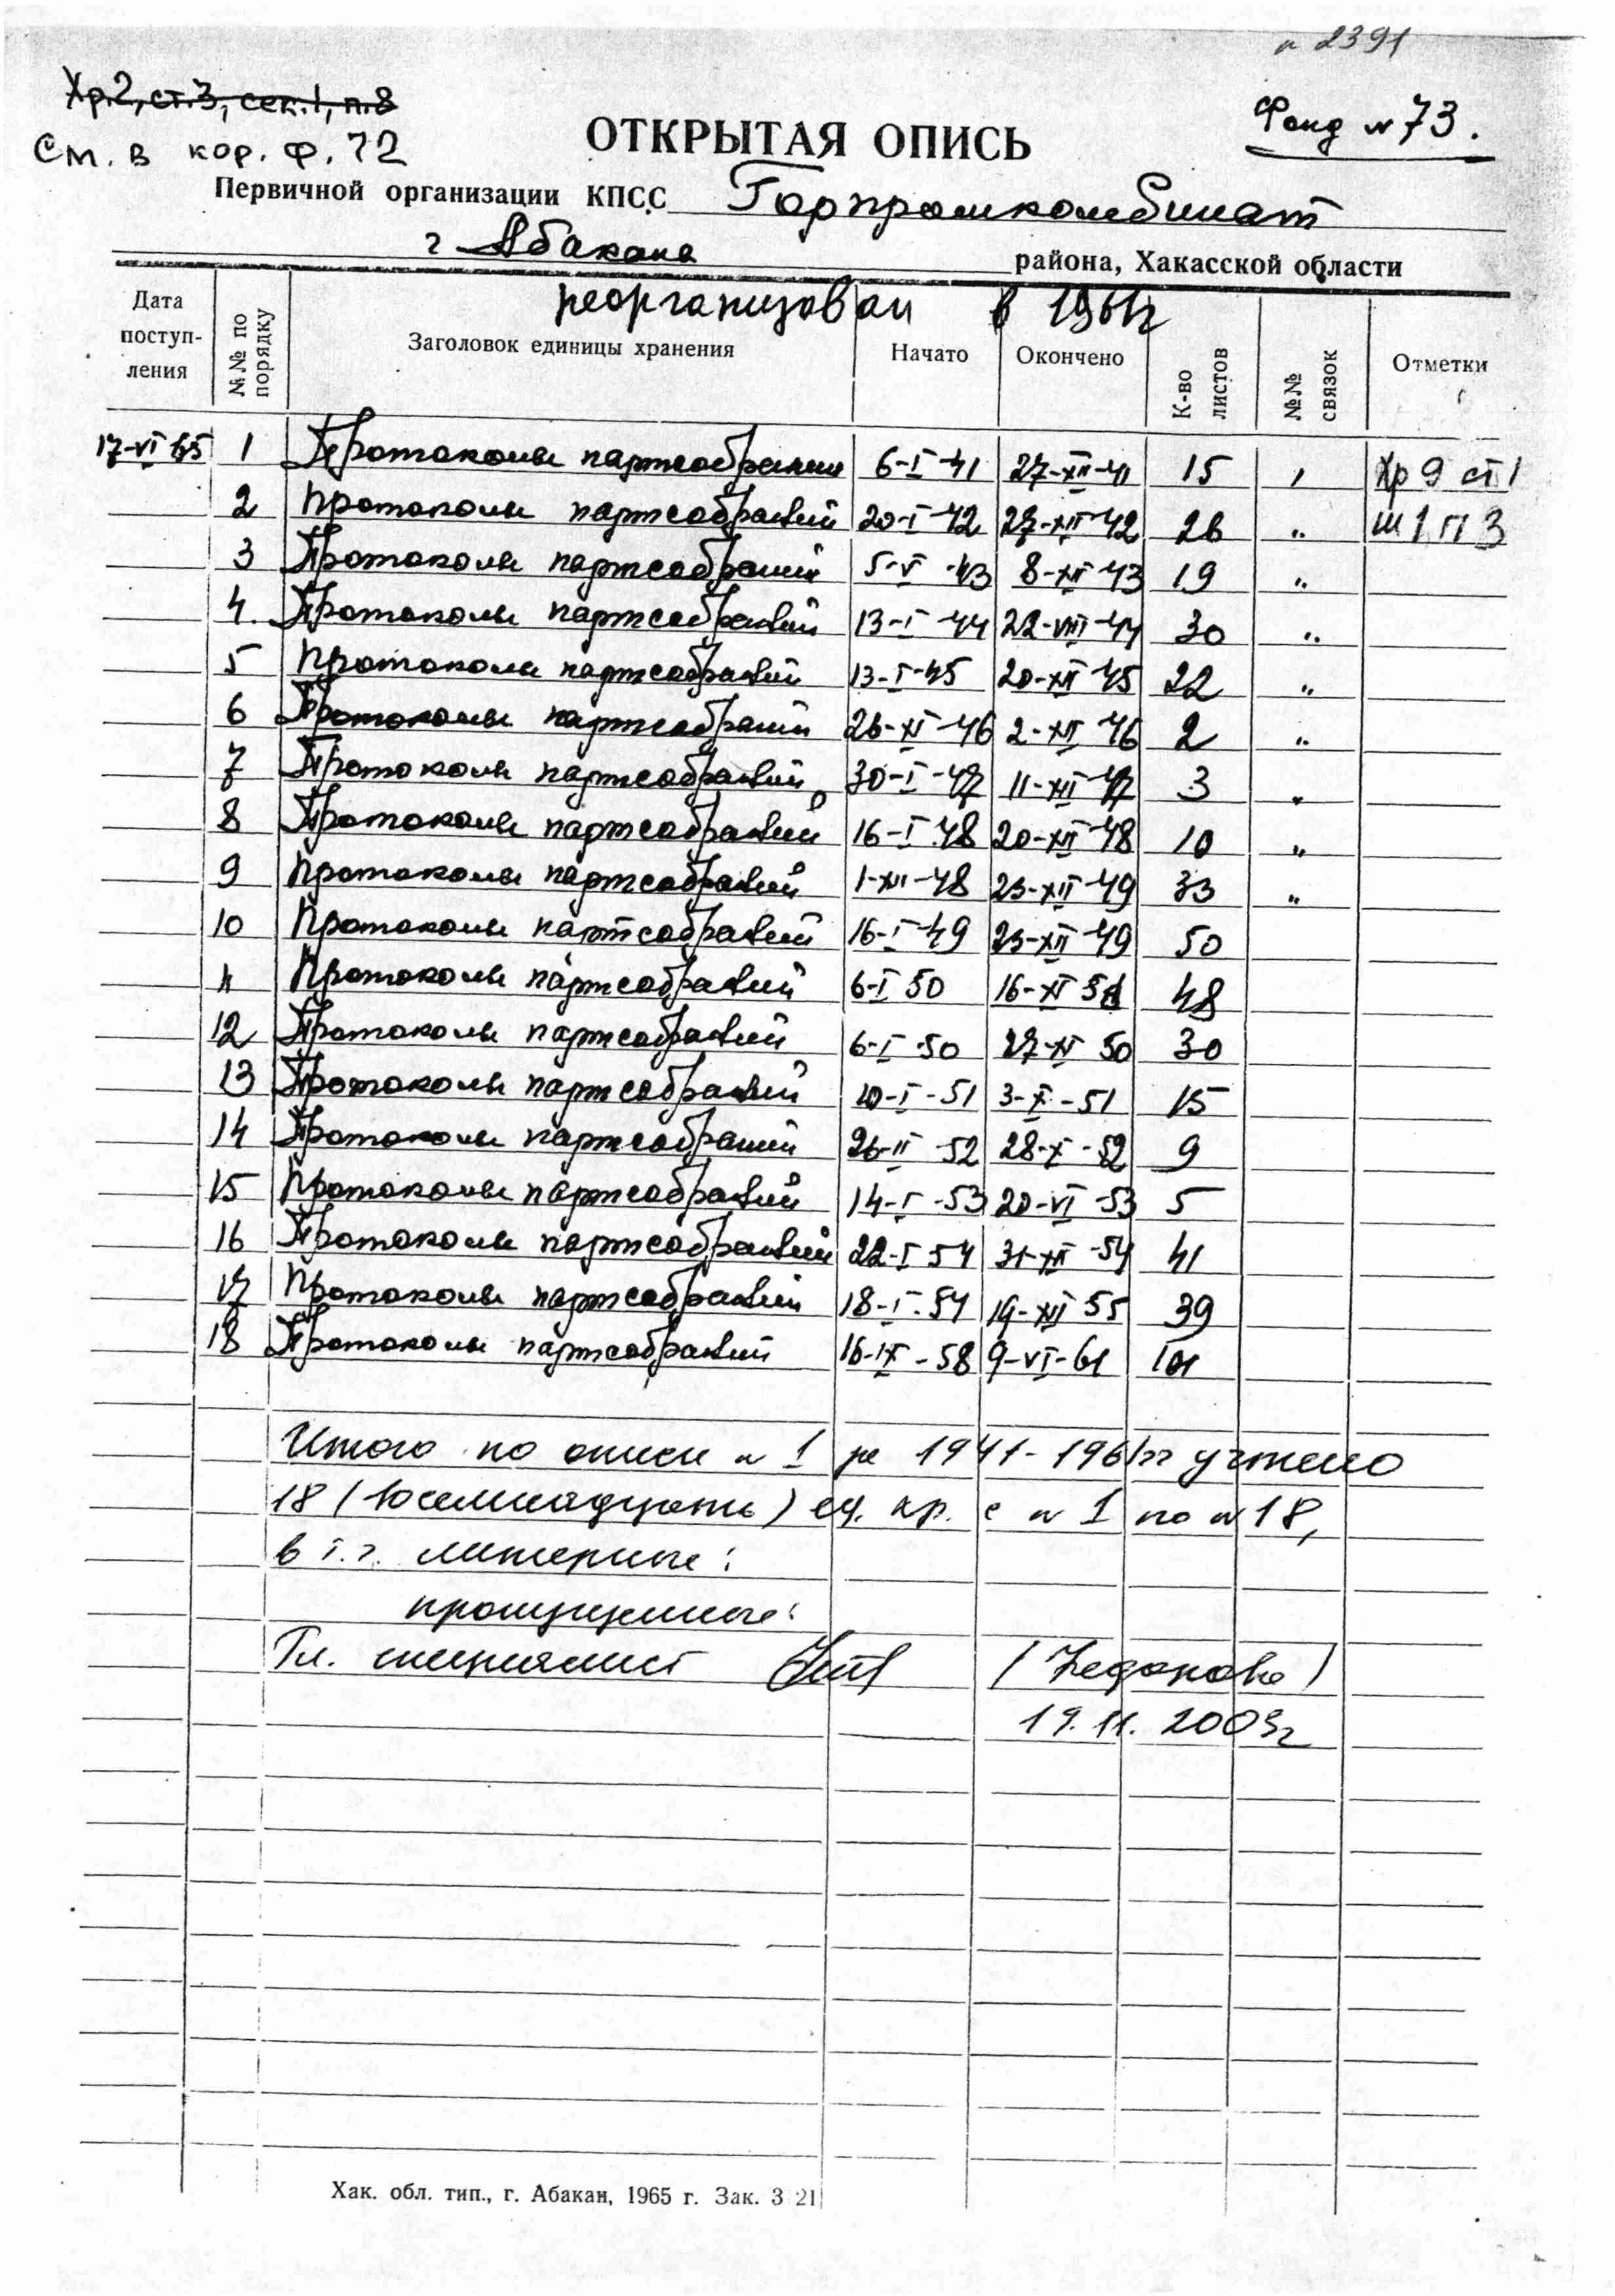 п 2391
Хр.2, ст.3, сек.1, п.8
Фонд №73.
См. в кор. ф. 72
ОТКРЫТАЯ ОПИСЬ
Первичной организации КПСС Горпромкомбинат
г Абакана района, Хакасской области
реорганизован в 1961г
Дата поступ-ления №№ по порядку Заголовок единицы хранения Начато Окончено К-во листов №№ связок Отметки
17-VI 65 1 Протоколы партсобраний 6-I-41 27-XII-41 15 1 Хр 9 ст 1
2 Протоколы партсобраний 20-I-42 27-XII-42 26 " Ш 1 П 3
3 Протоколы партсобраний 5-V-43 8-XII-43 19 "
4. Протоколы партсобраний 13-I-44 22-VIII-44 30 "
5 Протоколы партсобраний 13-I-45 20-XII-45 22 "
6 Протоколы партсобраний 26-XI-46 2-XII-46 2 "
7 Протоколы партсобраний 30-I-47 11-XII-47 3 "
8 Протоколы партсобраний 16-I-48 20-XII-48 10 "
9 Протоколы партсобраний 1-XII-48 23-XII-49 33 "
10 Протоколы партсобраний 16-I-49 23-XII-49 50
11 Протоколы партсобраний 6-I 50 16-XI 48
12 Протоколы партсобраний 6-I-50 27-XI 50 30
13 Протоколы партсобраний 10-I-51 3-X-51 15
14 Протоколы партсобраний 26-II-52 28-X-52 9
15 Протоколы партсобраний 14-I-53 20-VI-53 5
16 Протоколы партсобраний 22-I 54 31-XII-54 41
17 Протоколы партсобраний 18-I-54 19-XII 55 39
18 Протоколы партсобраний 16-IX-58 9-VI-61 101
Итого по описи № 1 за 1941-1961гг учтено
18 (восемнадцать) ед. хр. с № 1 по № 18,
в т.ч. литерные:
пропущенные:
Гл. специалист
19.11.2003г
Хак. обл. тип., г. Абакан, 1965 г. Зак. 3 21